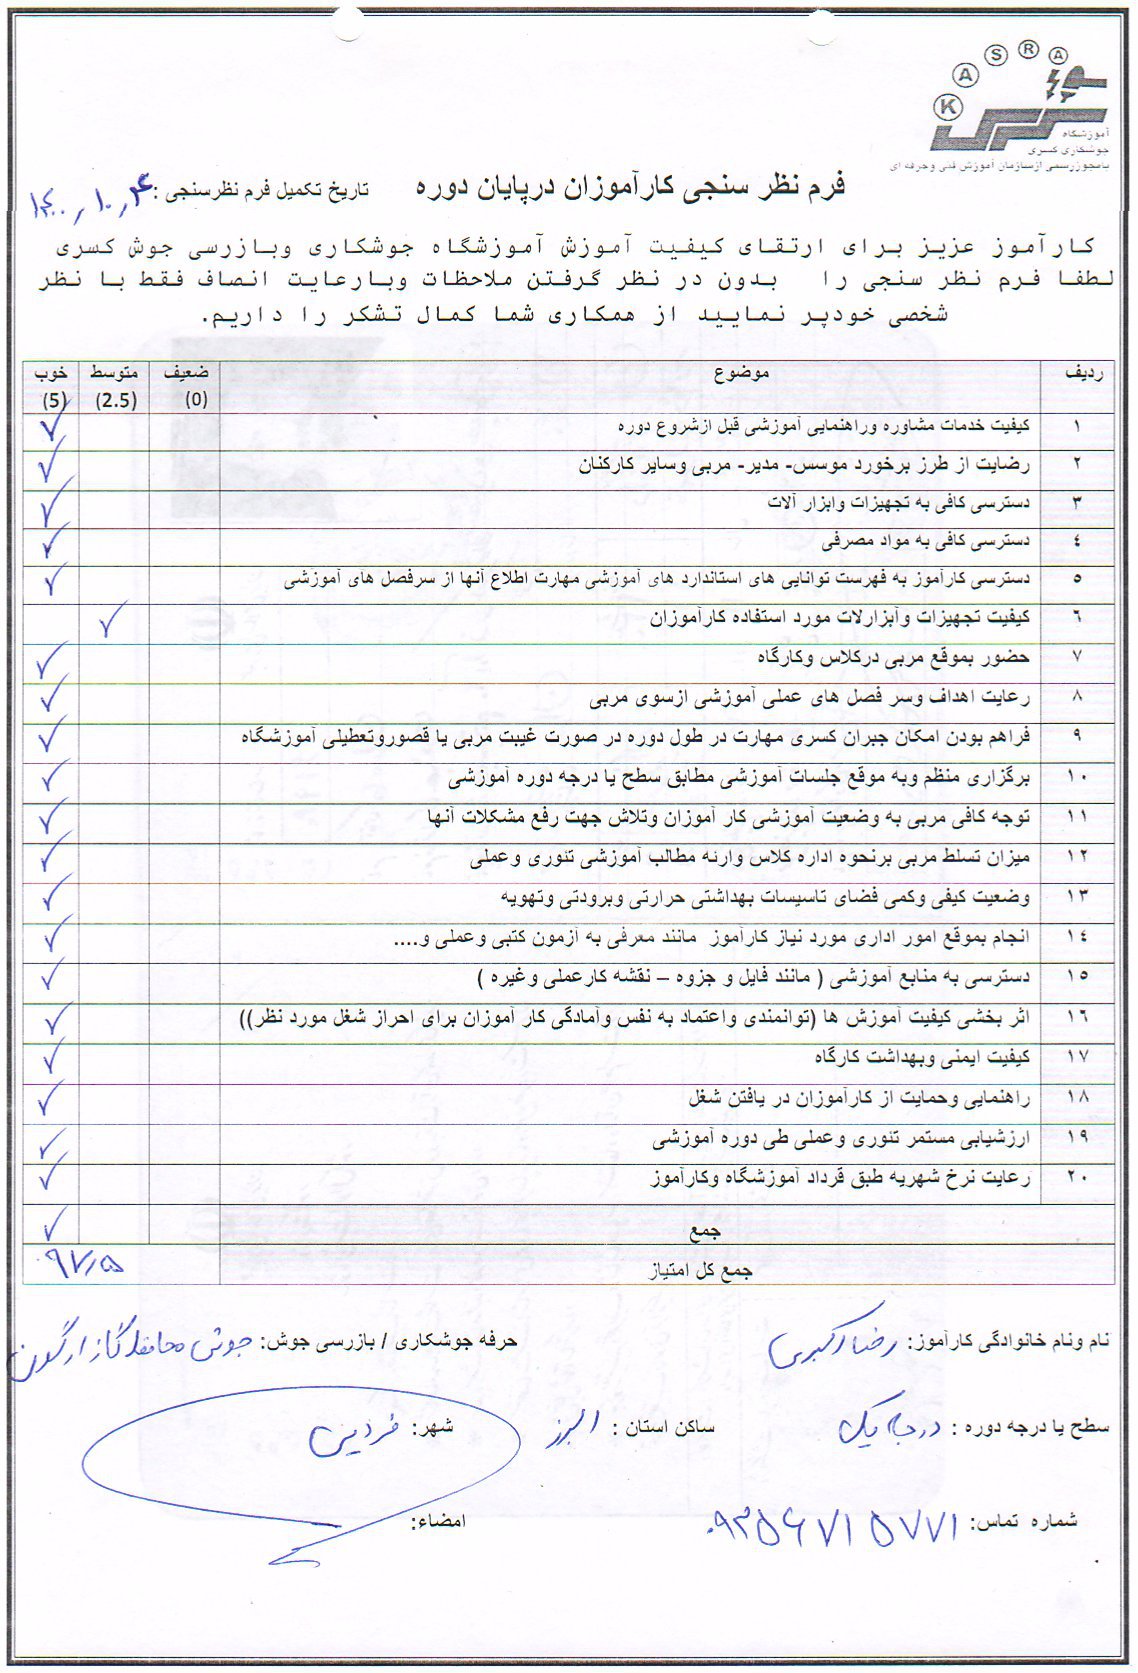 KASRA
آموزشگاه
جوشکاری کسری
بامجوزرسمی ازسازمان آموزش فنی وحرفه ای
فرم نظر سنجی کارآموزان درپایان دوره تاریخ تکمیل فرم نظرسنجی : ۱۴۰۰,۱۰,۴
کارآموز عزیز برای ارتقای کیفیت آموزش آموزشگاه جوشکاری وبازرسی جوش کسری
لطفا فرم نظر سنجی را بدون در نظر گرفتن ملاحظات وبارعایت انصاف فقط با نظر
شخصی خودپر نمایید از همکاری شما کمال تشکر را داریم.
ردیف موضوع ضعیف (0) متوسط (2.5) خوب (5)
۱ کیفیت خدمات مشاوره وراهنمایی آموزشی قبل ازشروع دوره ✓
۲ رضایت از طرز برخورد موسس- مدیر- مربی وسایر کارکنان ✓
۳ دسترسی کافی به تجهیزات وابزار آلات ✓
۴ دسترسی کافی به مواد مصرفی ✓
۵ دسترسی کارآموز به فهرست توانایی های استاندارد های آموزشی مهارت اطلاع آنها از سرفصل های آموزشی ✓
۶ کیفیت تجهیزات وآبزارلات مورد استفاده کارآموزان ✓
۷ حضور بموقع مربی درکلاس وکارگاه ✓
۸ رعایت اهداف وسر فصل های عملی آموزشی ازسوی مربی ✓
۹ فراهم بودن امکان جبران کسری مهارت در طول دوره در صورت غیبت مربی یا قصوروتعطیلی آموزشگاه ✓
۱۰ برگزاری منظم وبه موقع جلسات آموزشی مطابق سطح یا درجه دوره آموزشی ✓
۱۱ توجه کافی مربی به وضعیت آموزشی کار آموزان وتلاش جهت رفع مشکلات آنها ✓
۱۲ میزان تسلط مربی برنحوه اداره کلاس وارئه مطالب آموزشی تئوری وعملی ✓
۱۳ وضعیت کیفی وکمی فضای تاسیسات بهداشتی حرارتی وبرودتی وتهویه ✓
۱۴ انجام بموقع امور اداری مورد نیاز کارآموز مانند معرفی به آزمون کتبی وعملی و.... ✓
۱۵ دسترسی به منابع آموزشی ( مانند فایل و جزوه – نقشه کارعملی وغیره ) ✓
۱۶ اثر بخشی کیفیت آموزش ها (توانمندی واعتماد به نفس وآمادگی کار آموزان برای احراز شغل مورد نظر)) ✓
۱۷ کیفیت ایمنی وبهداشت کارگاه ✓
۱۸ راهنمایی وحمایت از کارآموزان در یافتن شغل ✓
۱۹ ارزشیابی مستمر تئوری وعملی طی دوره آموزشی ✓
۲۰ رعایت نرخ شهریه طبق قرداد آموزشگاه وکارآموز ✓
جمع ✓
جمع کل امتیاز ۹۷٫۵
نام ونام خانوادگی کارآموز: رضا اکبری حرفه جوشکاری / بازرسی جوش: جوش محافظ گاز ارگون
سطح یا درجه دوره : درجه یک ساکن استان : البرز شهر: فردیس
شماره تماس: ۰۹۳۵۶۷۱۵۷۷۱ امضاء: